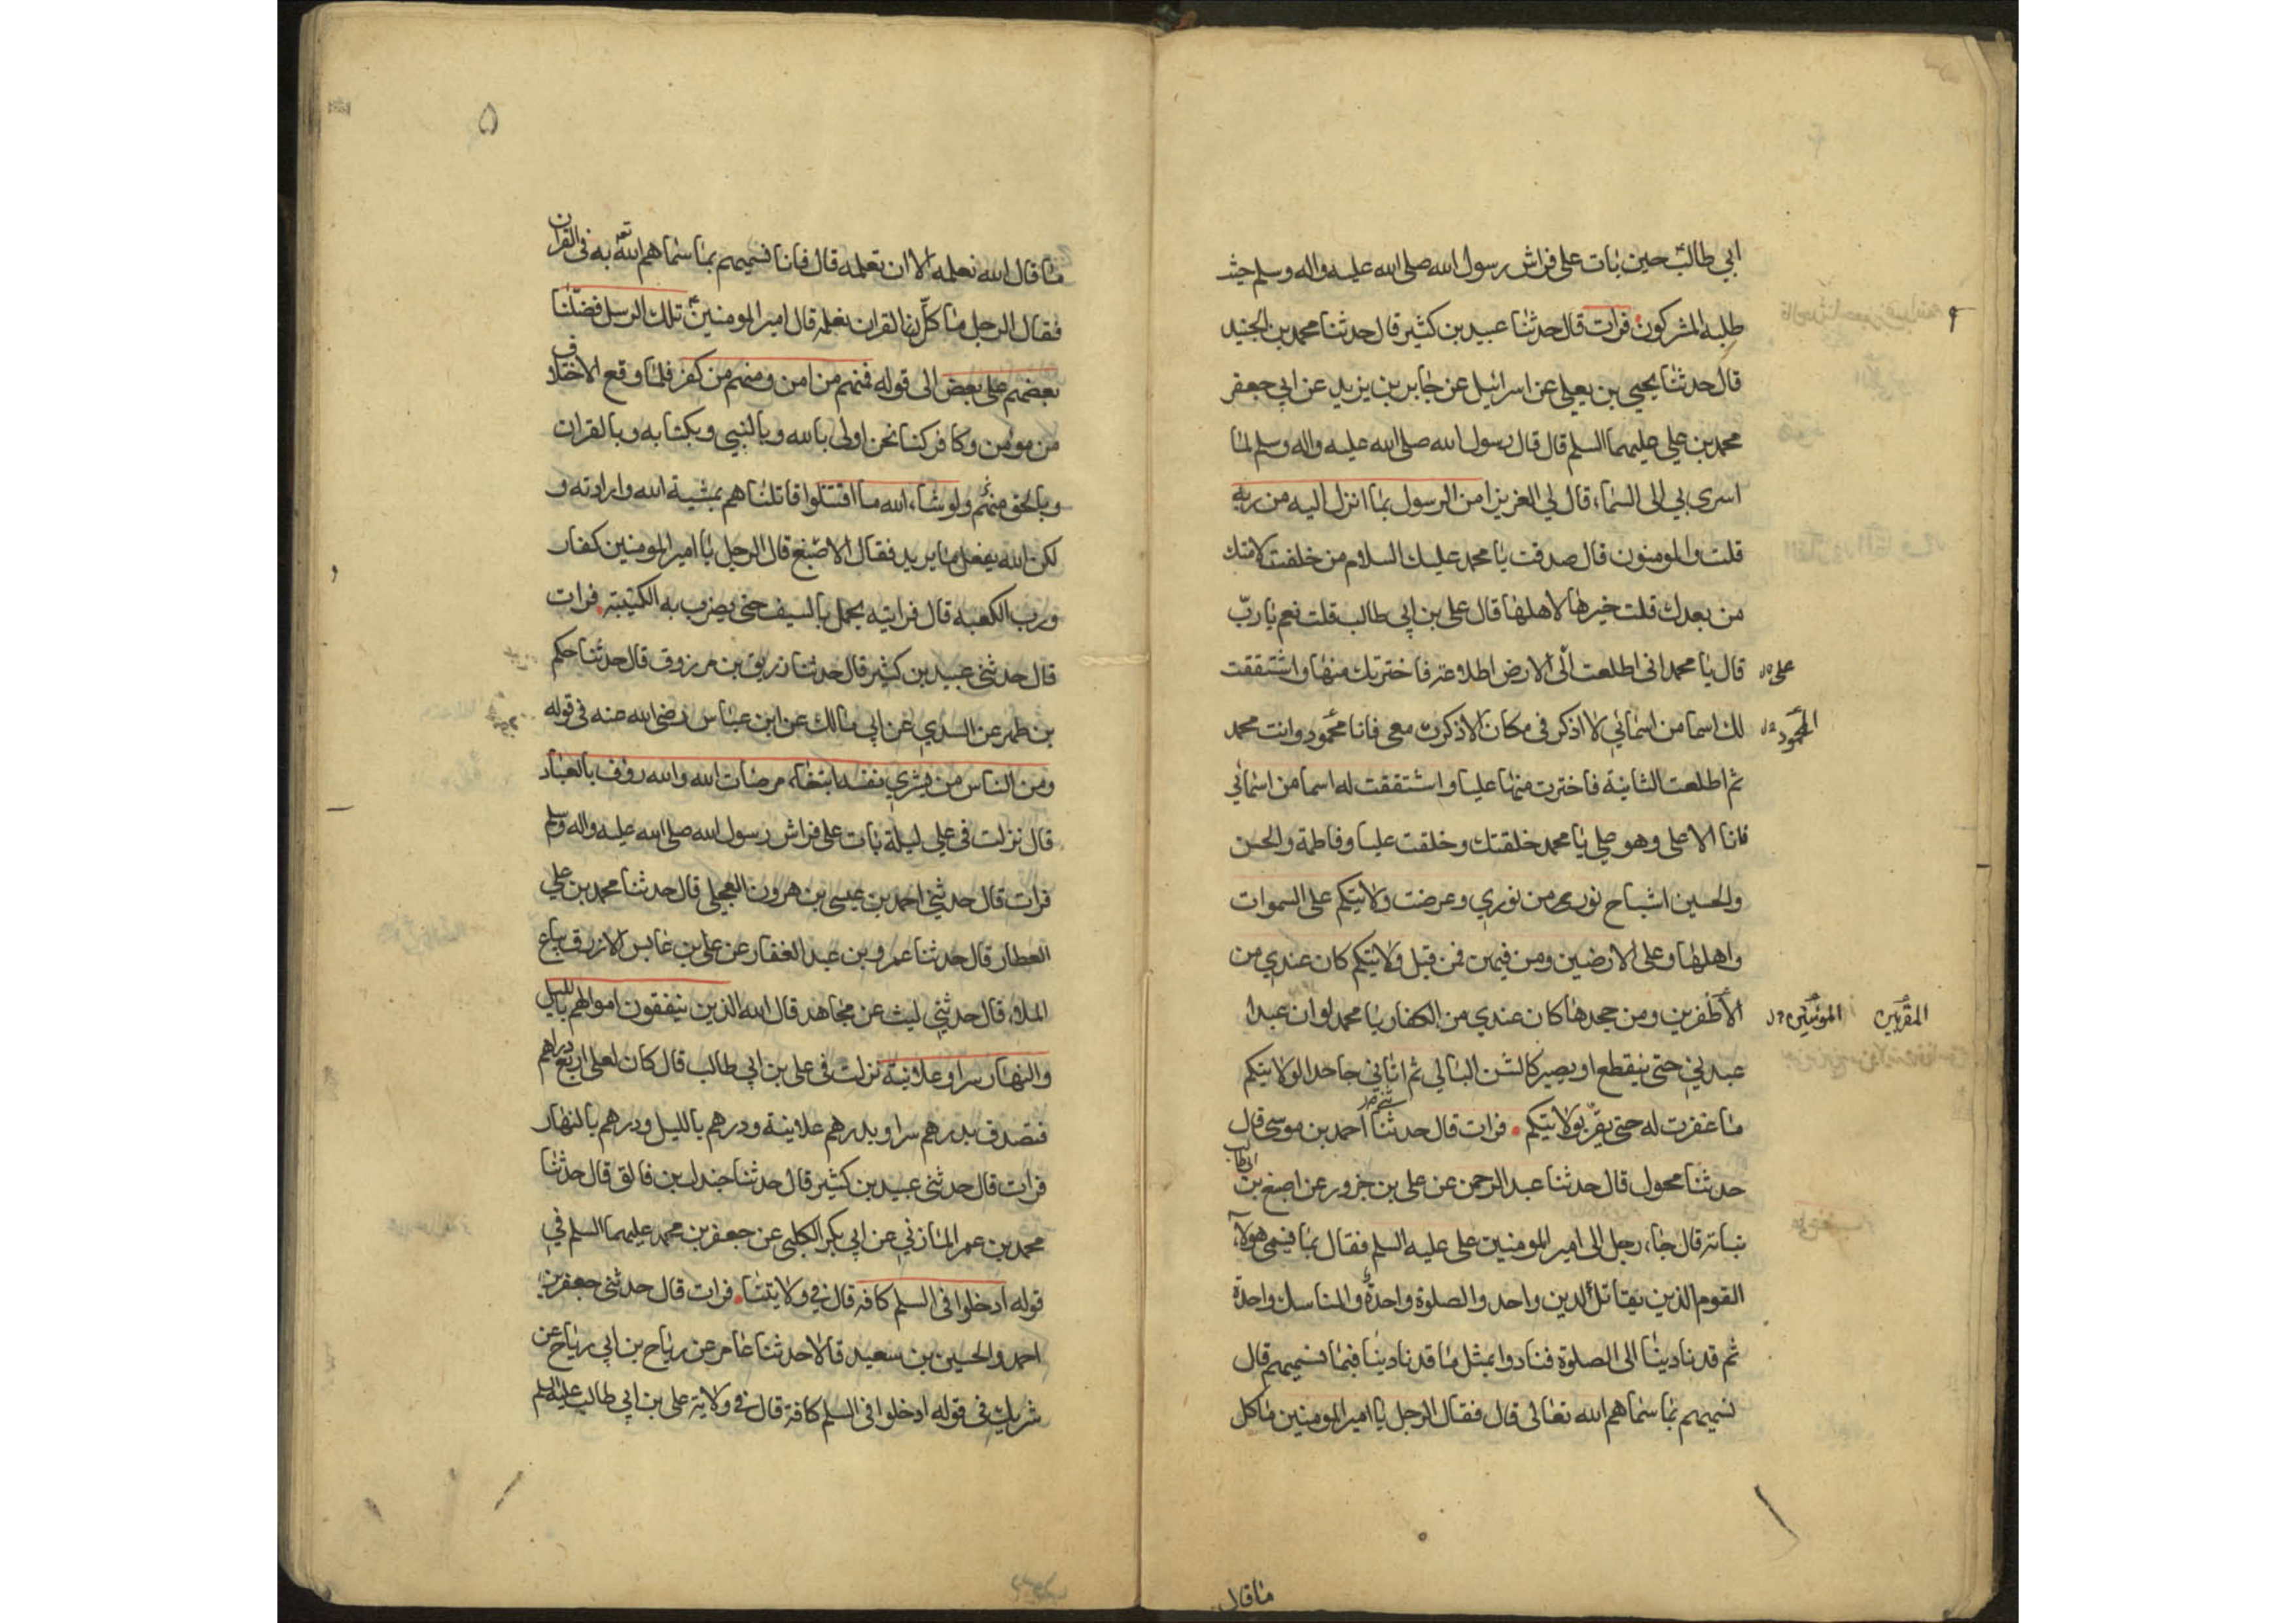 ابي طالب حين بات على فراش رسول الله صلى الله عليه واله وسلم حيث
طلبه المشركون فرات قال حدثنا عبيد بن كثير قال حدثنا محمد بن الجنيد
قال حدثنا يحيى بن يعلى عن اسرائيل عن جابر بن يزيد عن ابي جعفر
محمد بن علي عليهما السلم قال قال رسول الله صلى الله عليه واله وسلم لما
اسرى بي الى السماء قال لي العزيز امن الرسول بما انزل اليه من ربه
قلت والمومنون قال صدقت يا محمد عليك السلام من خلفت لامتك
من بعدك قلت خيرها لاهلها قال علي بن ابي طالب قلت نعم يا رب
قال يا محمد اني اطلعت الى الارض اطلاعة فاخترتك منها واشتققت
على
لك اسما من اسمائي لا اذكر في مكان الا ذكرت معي فانا محمود وانت محمد
المحمود
ثم اطلعت الثانية فاخترت منها عليا واشتققت له اسما من اسمائي
فانا الاعلى وهو علي يا محمد خلقتك وخلقت عليا وفاطمة والحسن
والحسين اشباح نوري من نوري وعرضت ولايتكم على السموات
واهلها وعلى الارضين ومن فيهن فمن قبل ولايتكم كان عندي من
الأظفرين ومن جحدها كان عندي من الكفار يا محمد لو ان عبدا
المقربين
عبدني حتى ينقطع او يصير كالشن البالي ثم اتاني جاحدا لولايتكم
ما غفرت له حتى يقر بولايتكم فرات قال حدثنا احمد بن موسى قال
حدثنا محول قال حدثنا عبد الرحمن عن علي بن جزور عن اصبغ بن
نباته قال جاء رجل الى امير المومنين علي عليه السلم فقال بما فيسمى هولاء
القوم الذين يقاتل الدين واحد والصلوة واحدة والمناسك واحدة
ثم قد نادينا الى الصلوة فنادوا بمثل ما قد نادينا فبما نسميهم قال
نسميهم بما سماهم الله تعالى قال فقال الرجل يا امير المومنين ما كل
ما قال
۵
ما قال الله نعلمه الا ان تعلمه قال فانا نسميهم بما سماهم الله تعه به في القران
فقال الرجل ما كل في القران نعلمه قال امير المومنين تلك الرسل فضلنا
بعضهم على بعض الى قوله فمنهم من امن ومنهم من كفر فلما وقع الاختلاف
من مومن وكافر كنا نحن اولى بالله وبالنبي وبكتابه وبالقرات
وبالحق منهم ولو شاء الله ما اقتتلوا قاتلناهم بمشية الله وارادته و
لكن الله يفعل ما يريد فقال الاصبغ قال الرجل يا امير المومنين كفار
ورب الكعبه قال فرايته يحمل بالسيف حتى يضرب به الكتيبة فرات
قال حدثني عبيد بن كثير قال حدثنا زريق بن مرزوق قال حدثنا حكم
بن ظهر عن السدي عن ابي مالك عن ابن عباس رضي الله عنه في قوله
ومن الناس من يشري نفسه ابتغاء مرضات الله والله رؤف بالعباد
قال نزلت في علي ليلة بات على فراش رسول الله صلى الله عليه واله وسلم
فرات قال حدثني احمد بن عيسى بن هرون العجلي قال حدثنا محمد بن علي
العطار قال حدثنا عمرو بن عبد الغفار عن علي بن عابس الازرق بياع
الملاء قال حدثني ليث عن مجاهد قال الله الذين ينفقون اموالهم بالليل
والنهار سرا وعلانية نزلت في علي بن ابي طالب قال كان لعلي اربع دراهم
فتصدق بدرهم سرا وبدرهم علانية ودرهم بالليل ودرهم بالنهار
فرات قال حدثني عبيد بن كثير قال حدثنا جندل بن فالق قال حدثنا
محمد بن عمر المازني عن ابي بكر الكلبي عن جعفر بن محمد عليهما السلم في
قوله ادخلوا في السلم كافه قال في ولايتنا فرات قال حدثني جعفر بن
احمد والحسين بن سعيد قالا حدثنا عامر عن رياح بن ابي رياح عن
شريك في قوله ادخلوا في السلم كافة قال في ولاية علي بن ابي طالب عليه السلم